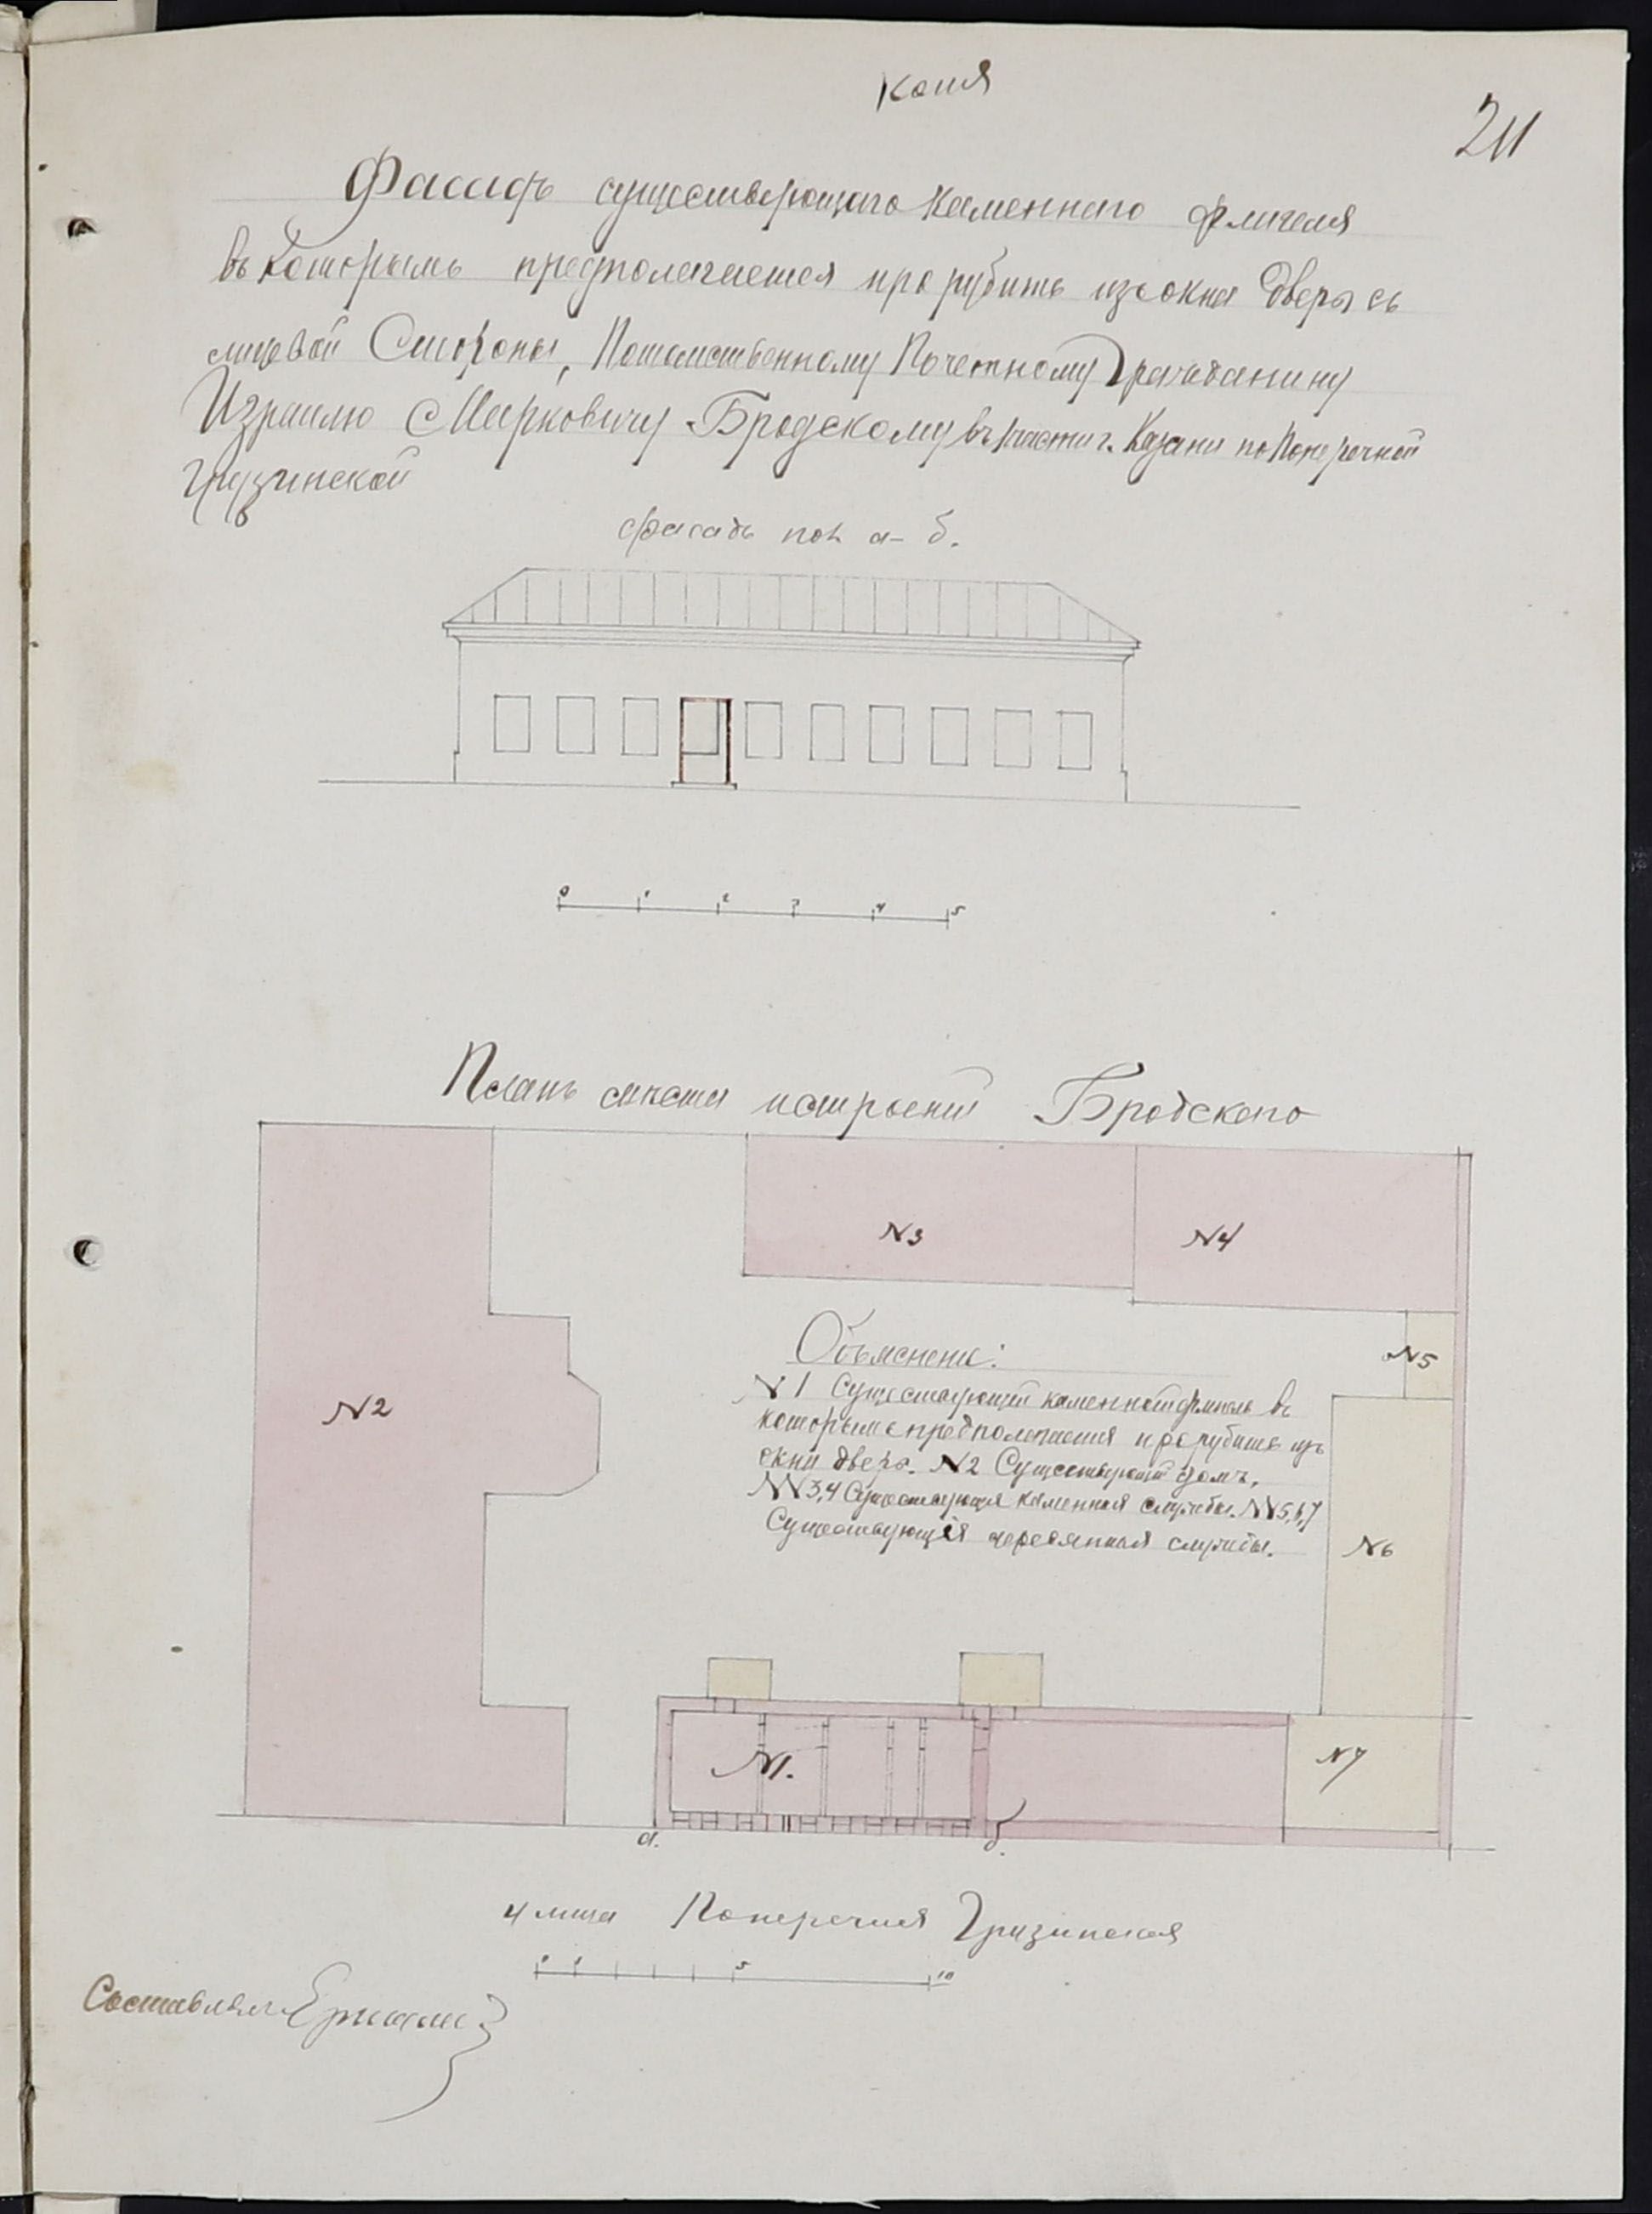 Копія
211
Фасадъ существующаго каменнаго флигеля
въ которымъ предполагается прорубить изъ окна дверь съ
лицевой Стороны, Потомственному Почетному Гражданину
Израилю Марковичу Бродскому въ части г. Казани по Поперечной
Грузинской
фасадъ по л. а-б.
0 1 2 3 4 5
Планъ мѣста и строенiй Бродскаго
N3
N4
Объяснение:
N5
N 1 Существующiй каменной флигель въ
N2
которымъ предполагается прорубить изъ
окна дверь. N2 Существующiй домъ.
NN 3,4 Существующия каменныя службы. NN 5,6,7
Существующiя деревянныя службы.
N6
N1.
N7
а.
б.
улица Поперечная Грузинская
0 1 5 10
Составлял